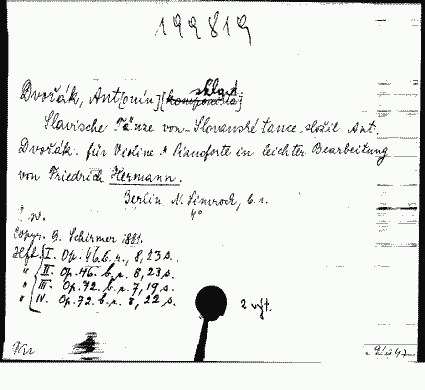 199819
Dvořák, Ant[onín] [komponista] sklad.
Slavische Tänze von - Slovanské tance složil Ant.
Dvořák. für Violine & Pianoforte in leichter Bearbeitung
von Friedrich Hermann.
Berlin, N. Simrock, b. r.
4°
Copyr. G. Schirmer 1881.
Heft I. Op. 46. b. r., 8, 23 s.
" II. Op. 46. b. r. 8, 23 s.
" III. Op. 72. b. r. 7, 19 s.
" IV. Op. 72. b. r. 8, 22 s.
2 výt.